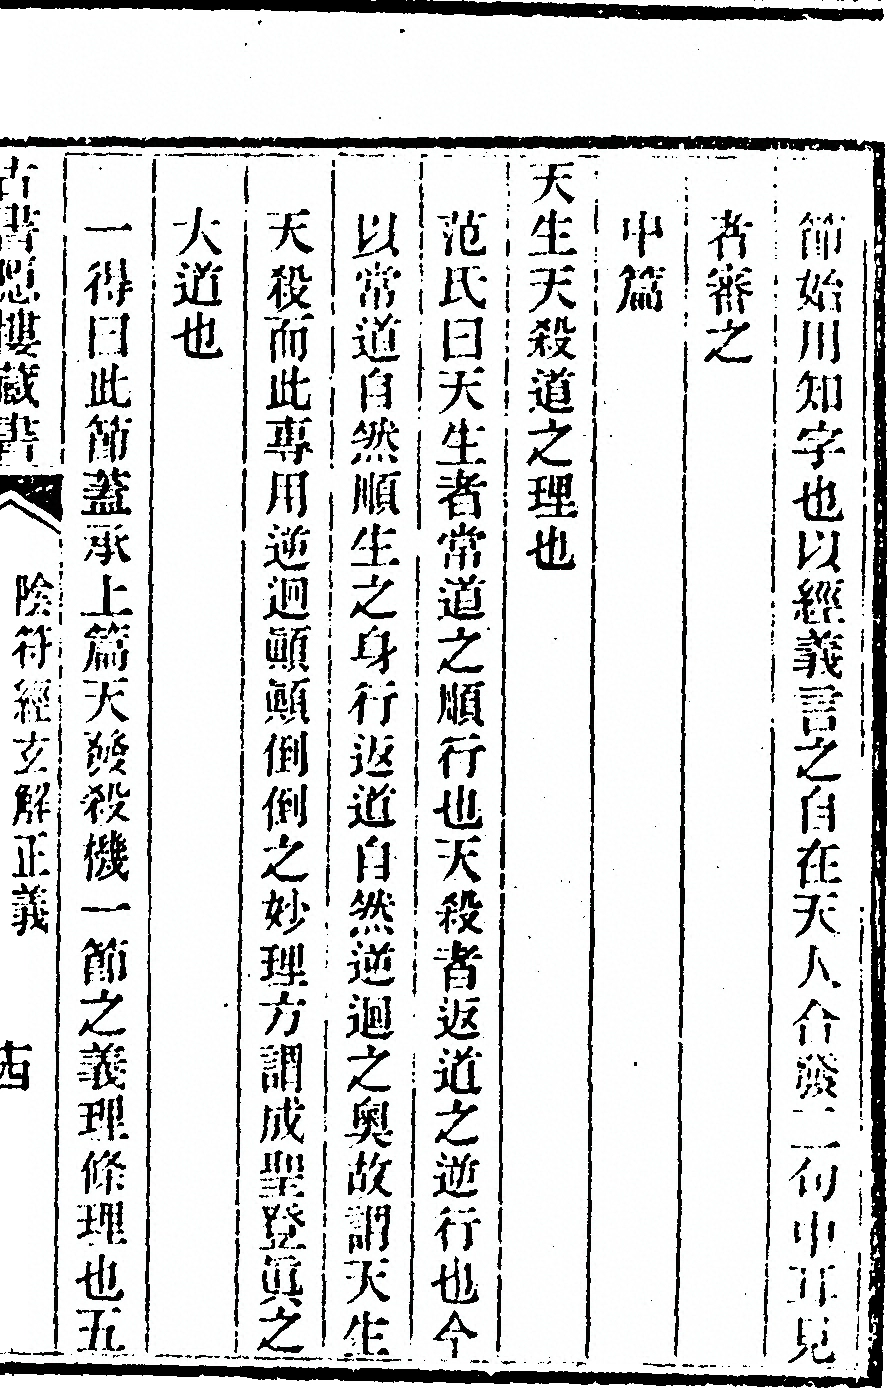 節始用知字也以經義言之自在天人合發二句中耳見
者審之
中篇
天生天殺道之理也
范氏曰天生者常道之順行也天殺者返道之逆行也今
以常道自然順生之身行返道自然逆迴之奧故謂天生
天殺而此專用逆迴顚顚倒倒之妙理方謂成聖登眞之
大道也
一得曰此節蓋承上篇天發殺機一節之義理條理也五
古書隱樓藏書
陰符經玄解正義